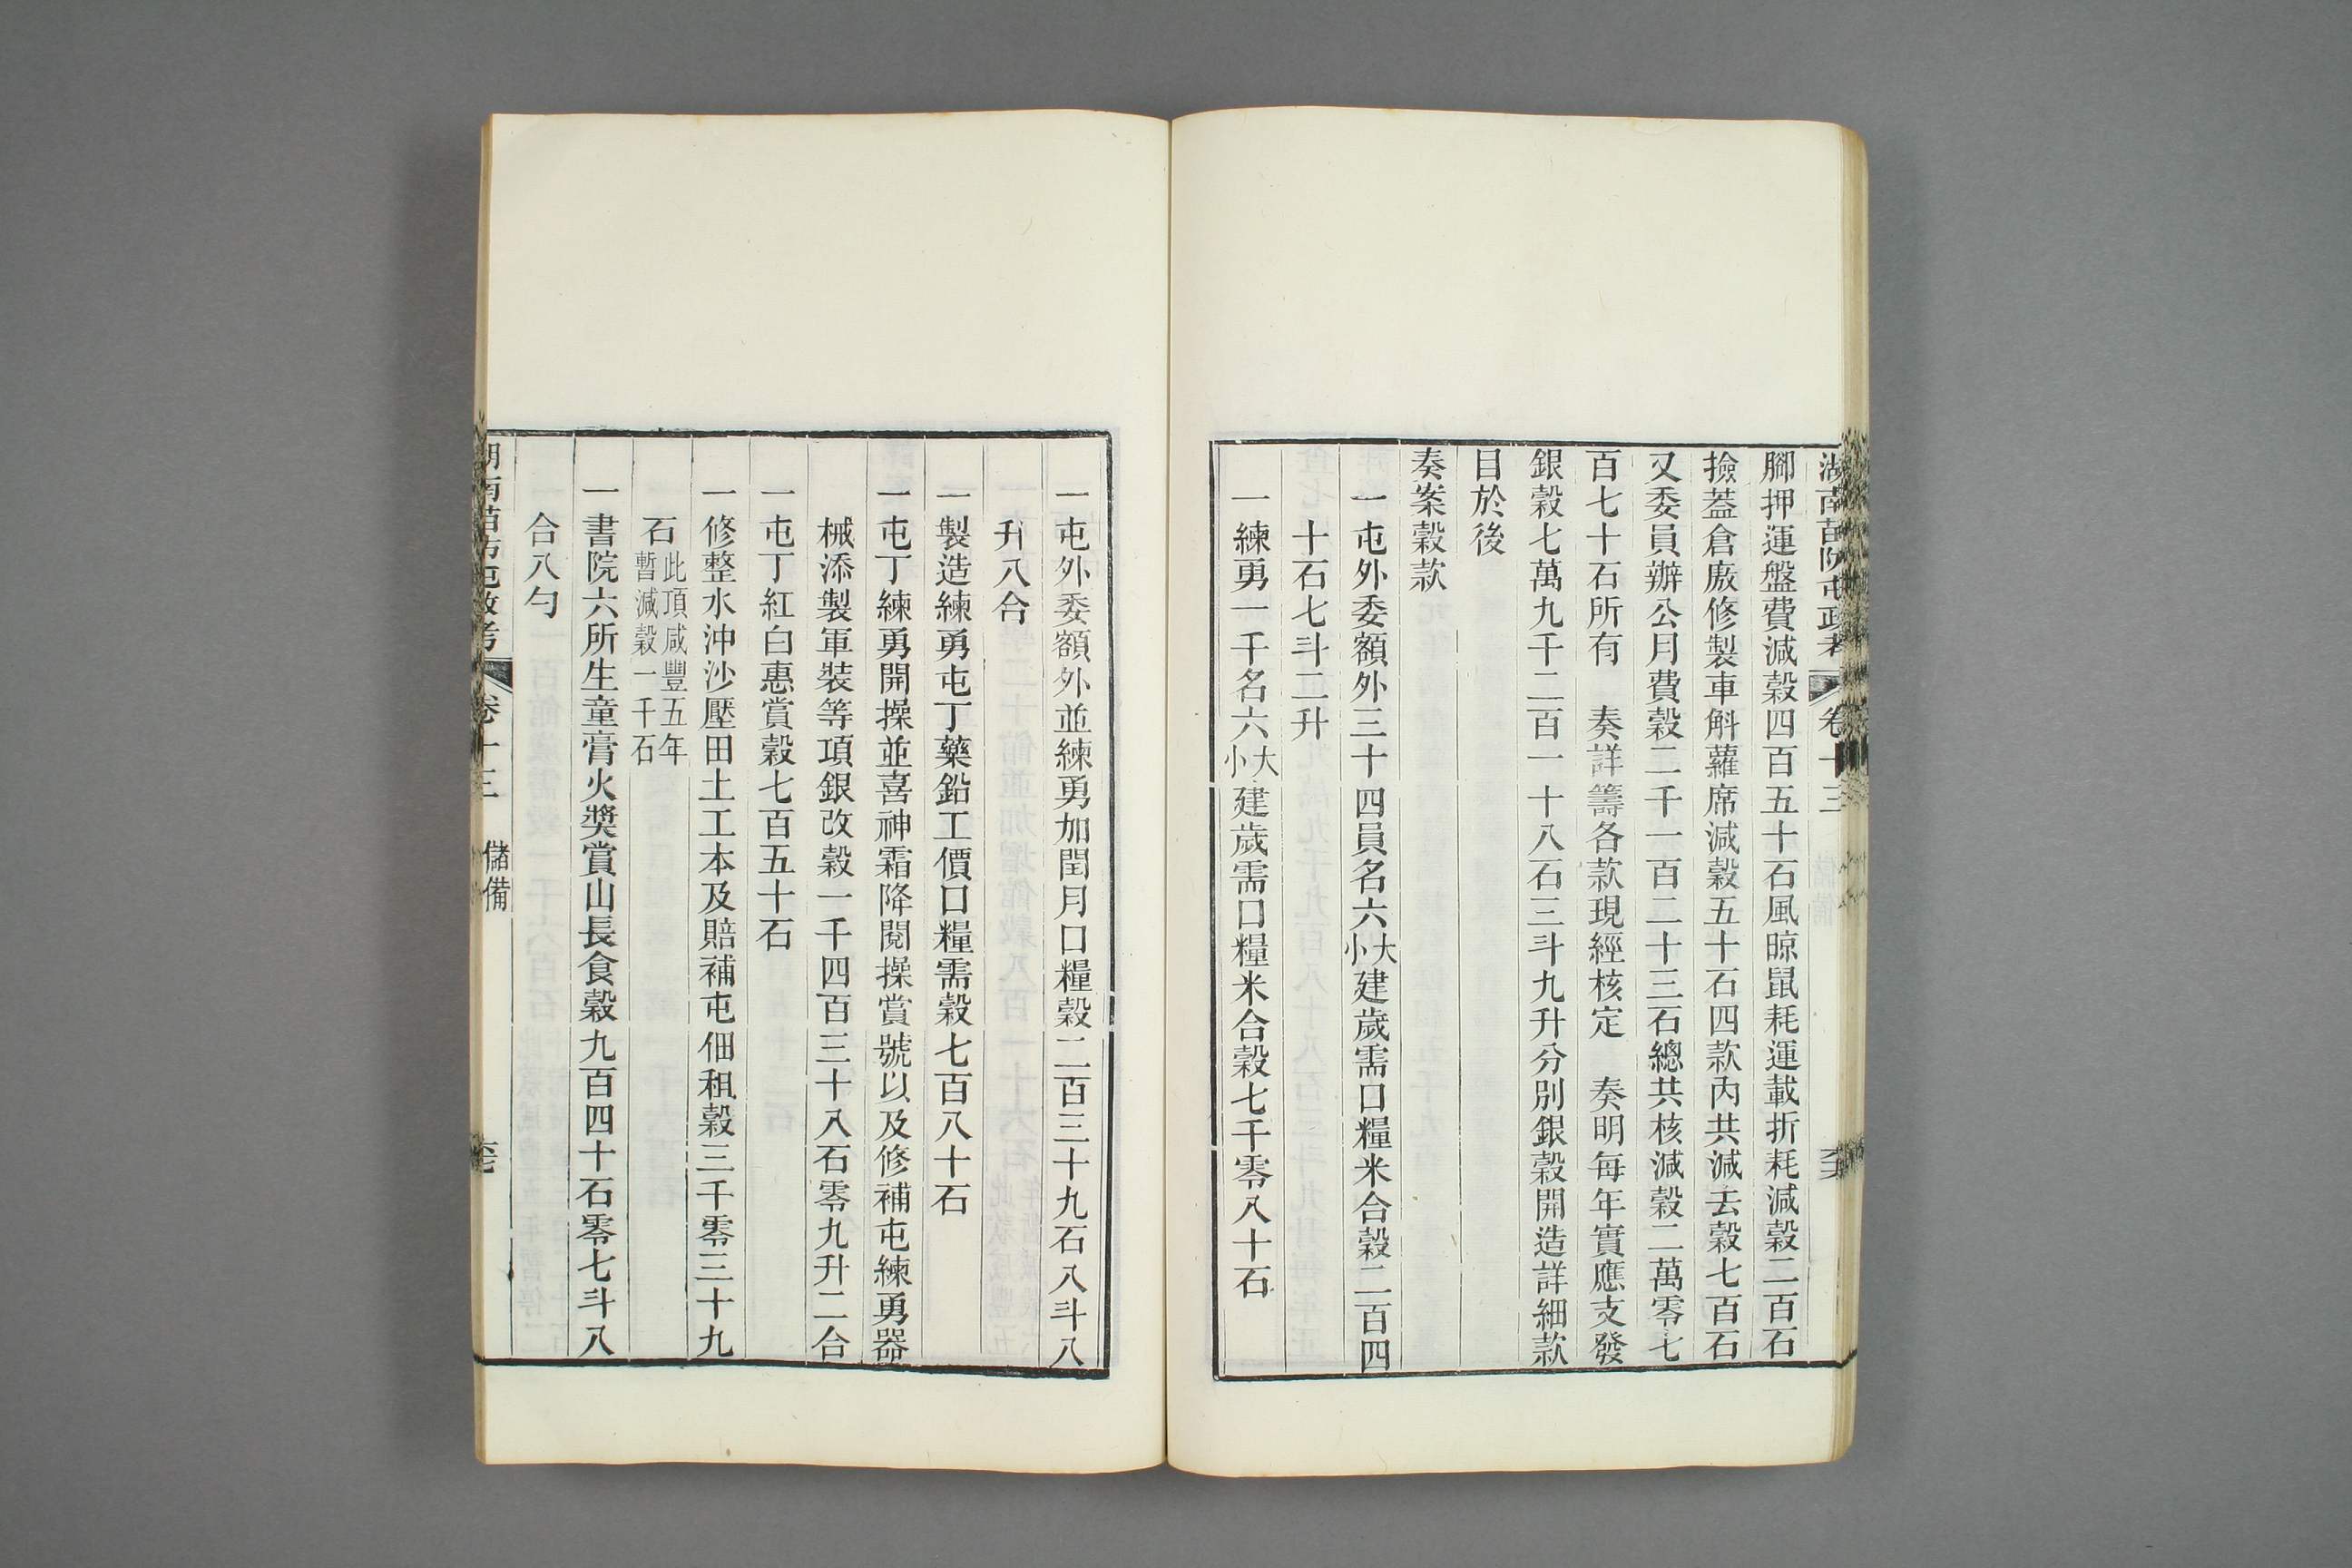 湖南苗防屯政考 卷十三
腳押運盤費減穀四百五十石風晾鼠耗運載折耗減穀二百石
撿蓋倉廒修製車斛蘿席減穀五十石四款內共減去穀七百石
又委員辦公月費穀二千一百二十三石總共核減穀二萬零七
百七十石所有 奏詳籌各款現經核定 奏明每年實應支發
銀穀七萬九千二百一十八石三斗九升分別銀穀開造詳細款
目於後
奏案穀款
一屯外委額外三十四員名六大小建歲需口糧米合穀二百四
十石七斗二升
一練勇一千名六大小建歲需口糧米合穀七千零八十石
一屯外委額外並練勇加閏月口糧穀二百三十九石八斗八
升八合
一製造練勇屯丁藥鉛工價口糧需穀七百八十石
一屯丁練勇開操並喜神霜降閱操賞號以及修補屯練勇器
械添製軍裝等項銀改穀一千四百三十八石零九升二合
一屯丁紅白惠賞穀七百五十石
一修整水沖沙壓田土工本及賠補屯佃租穀三千零三十九
石此項咸豐五年
暫減穀一千石
一書院六所生童膏火獎賞山長食穀九百四十石零七斗八
合八勺
湖南苗防屯政考 卷十三 儲備